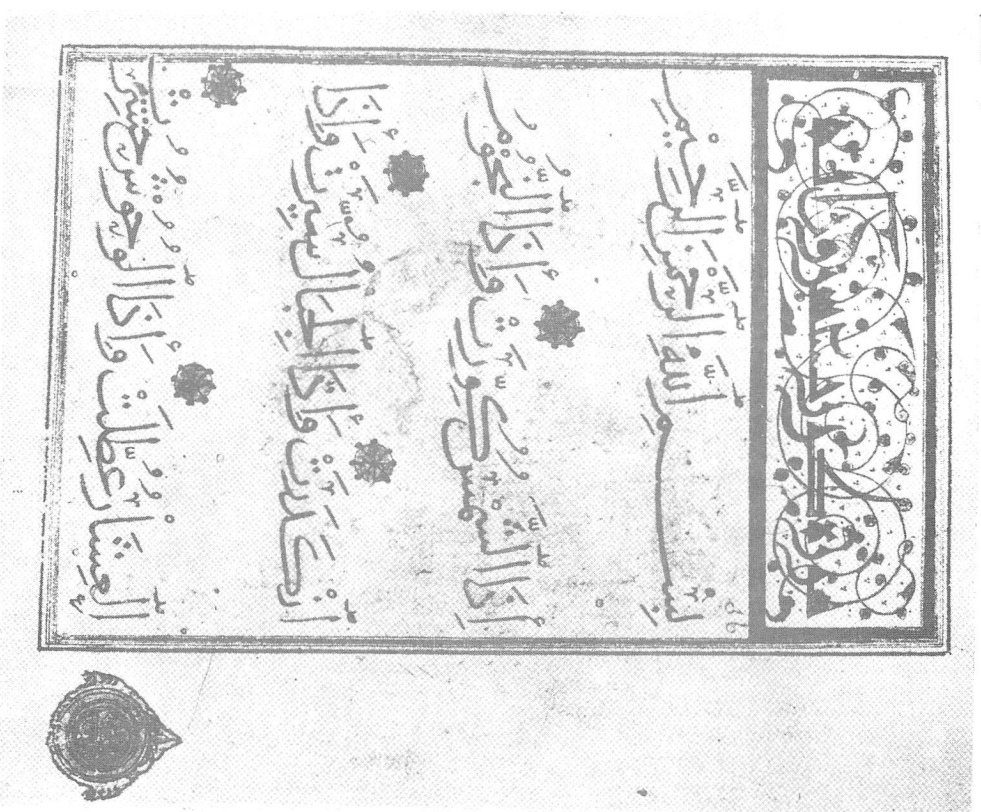 بِسْمِ اللَّهِ الرَّحْمَنِ الرَّحِيمِ
إِذَا الشَّمْسُ كُوِّرَتْ وَإِذَا النُّجُومُ
انْكَدَرَتْ وَإِذَا الْجِبَالُ سُيِّرَتْ وَإِذَا
الْعِشَارُ عُطِّلَتْ وَإِذَا الْوُحُوشُ حُشِرَتْ